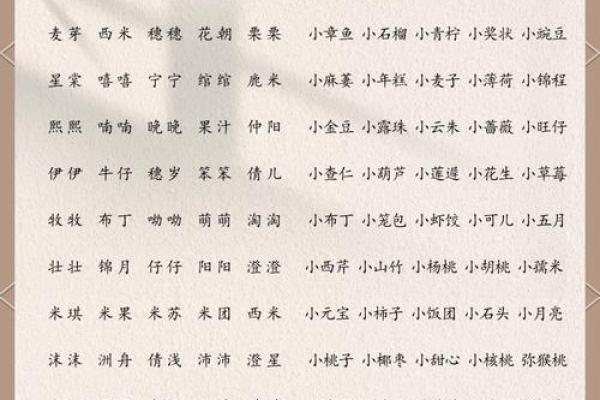 麦芽 西米 穗穗 花朝 栗栗 小章鱼 小石榴 小青柠 小奖状 小豌豆
星棠 嘻嘻 宁宁 绾绾 鹿米 小麻薯 小年糕 小麦子 小薄荷 小锦程
熙熙 喃喃 晚晚 果汁 仲阳 小金豆 小露珠 小云朱 小蔷薇 小旺仔
伊伊 牛仔 穗岁 笨笨 倩儿 小查仁 小葫芦 小莲蓬 小花生 小草莓
牧牧 布丁 呦呦 萌萌 淘淘 小布丁 小笼包 小虾饺 小可儿 小五月
壮壮 锦月 仔仔 阳阳 澄澄 小西芹 小山竹 小杨桃 小胡桃 小孺米
米琪 米果 米苏 米团 西米 小元宝 小柿子 小饭团 小石头 小月亮
沫沫 洲舟 倩浅 沛沛 澄星 小桃子 小椰枣 小甜心 小核桃 弥猴桃